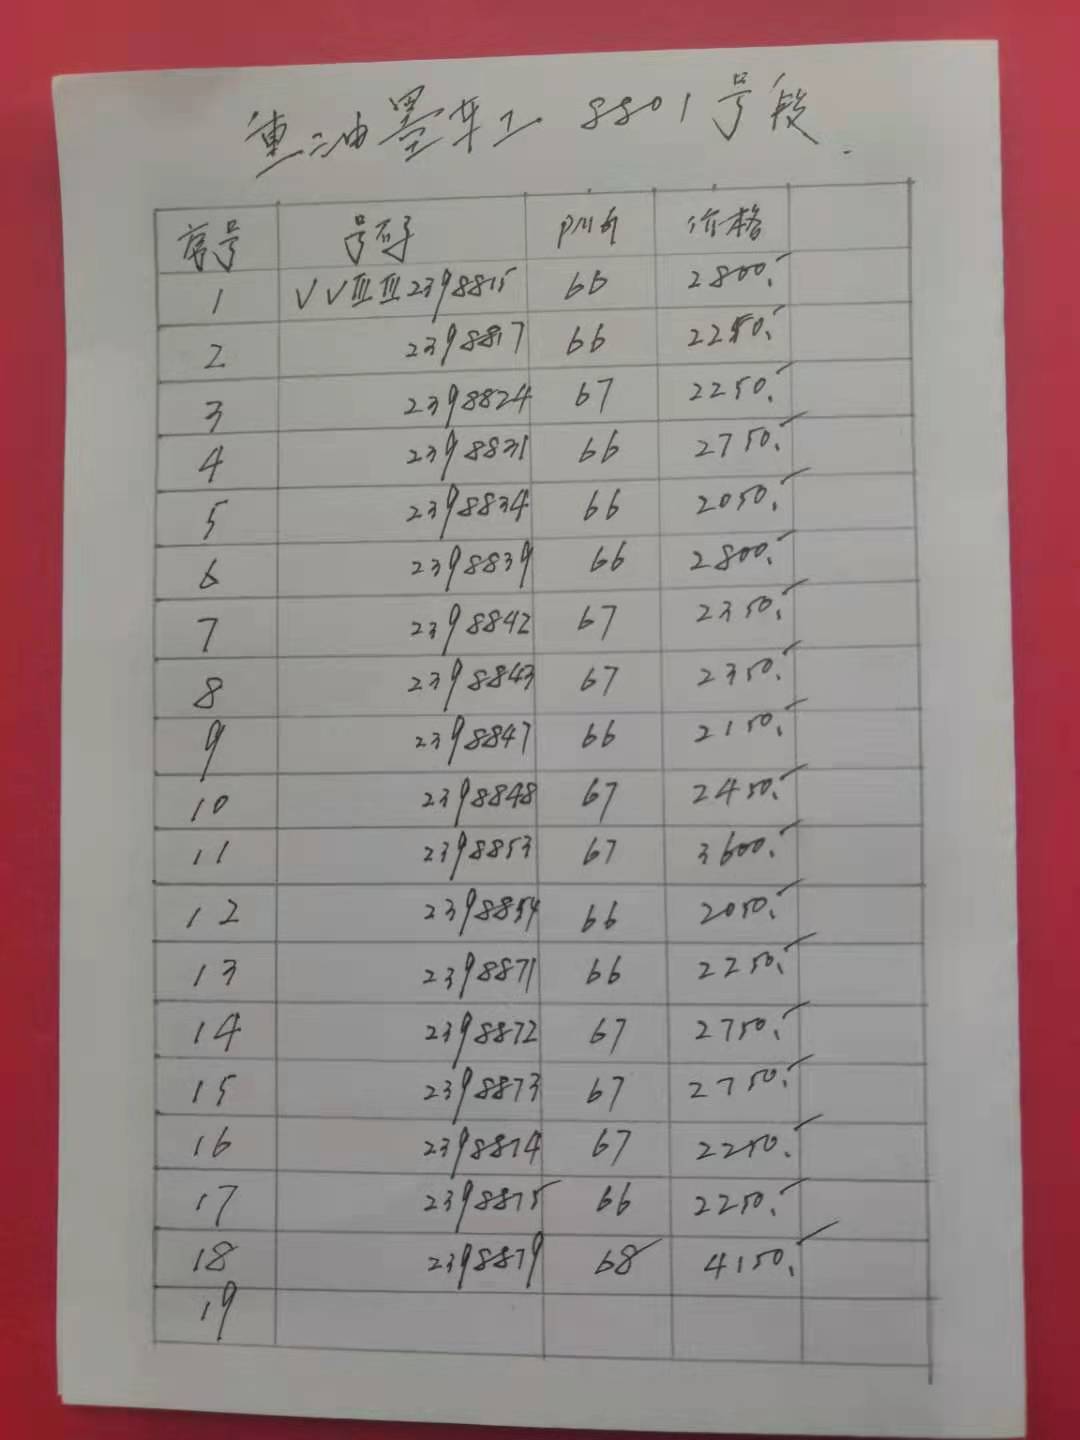 重油墨车工 8801号段.
序号 号码 PMG 价格
1 VVIIIIII2398815 66 2800.-
2 2398817 66 2250.-
3 2398824 67 2250.-
4 2398831 66 2750.-
5 2398834 66 2050.-
6 2398839 66 2800.-
7 2398842 67 2350.-
8 2398843 67 2350.-
9 2398847 66 2150.-
10 2398848 67 2450.-
11 2398853 67 3600.-
12 2398854 66 2050.-
13 2398871 66 2250.-
14 2398872 67 2750.-
15 2398873 67 2750.-
16 2398874 67 2250.-
17 2398875 66 2250.-
18 2398879 68 4150.-
19